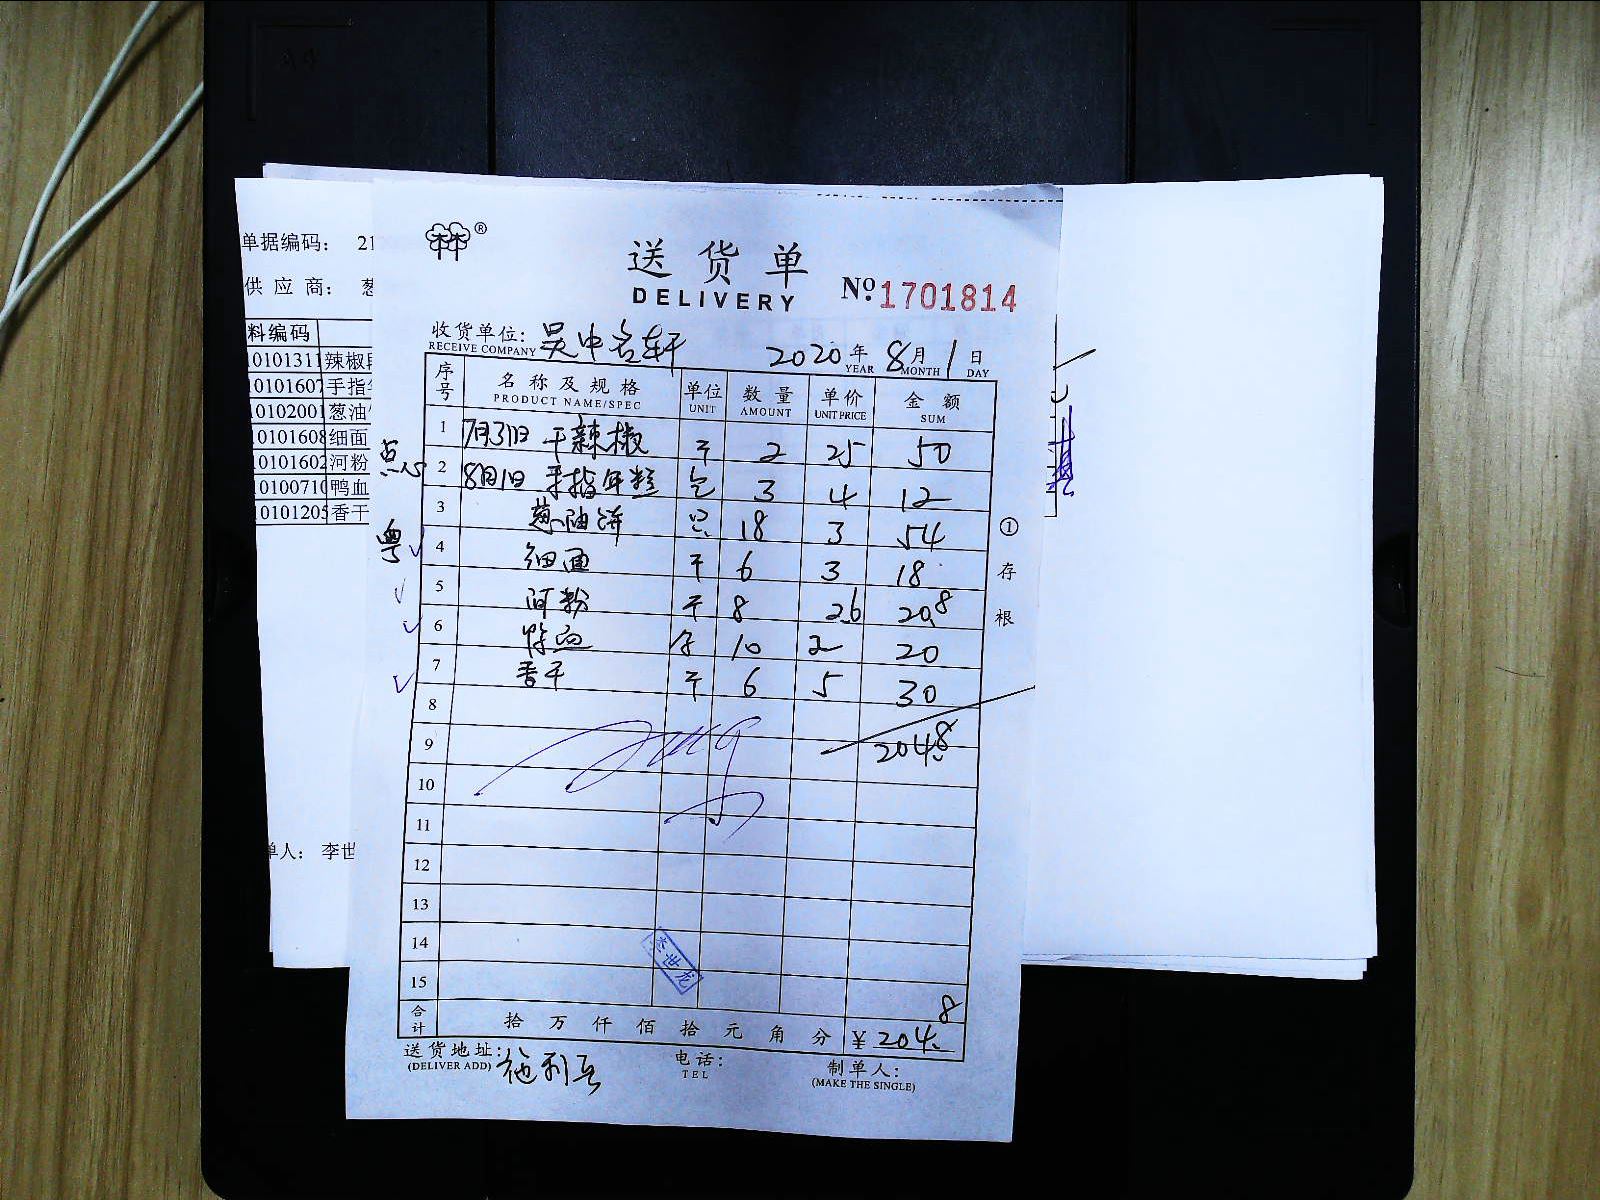 单据编码： 21
供 应 商： 葱
料编码
10101311 辣椒
10101607 手指
10102001 葱油
10101608 细面
10101602 河粉
10100710 鸭血
10101205 香干
单人： 李世
®
送货单
DELIVERY
No. 1701814
收货单位： 吴中名轩
RECEIVE COMPANY
2020 年 8 月 1 日
YEAR MONTH DAY
序号 名称及规格 单位 数量 单价 金额
PRODUCT NAME/SPEC UNIT AMOUNT UNIT PRICE SUM
1 7月31日 干辣椒 斤 2 25 50
点心
2 8月1日 手指年糕 包 3 4 12
3 葱油饼 只 18 3 54
粤
4 细面 斤 6 3 18
5 河粉 斤 8 2.6 20.8
6 鸭血 10 2 20
7 香干 斤 6 5 30
8
9 204.8
10
11
12
13
14
15
李世龙
合计 拾 万 仟 佰 拾 元 角 分 ¥ 204.8
送货地址：
(DELIVER ADD)
电话：
TEL
制单人：
(MAKE THE SINGLE)
① 存根